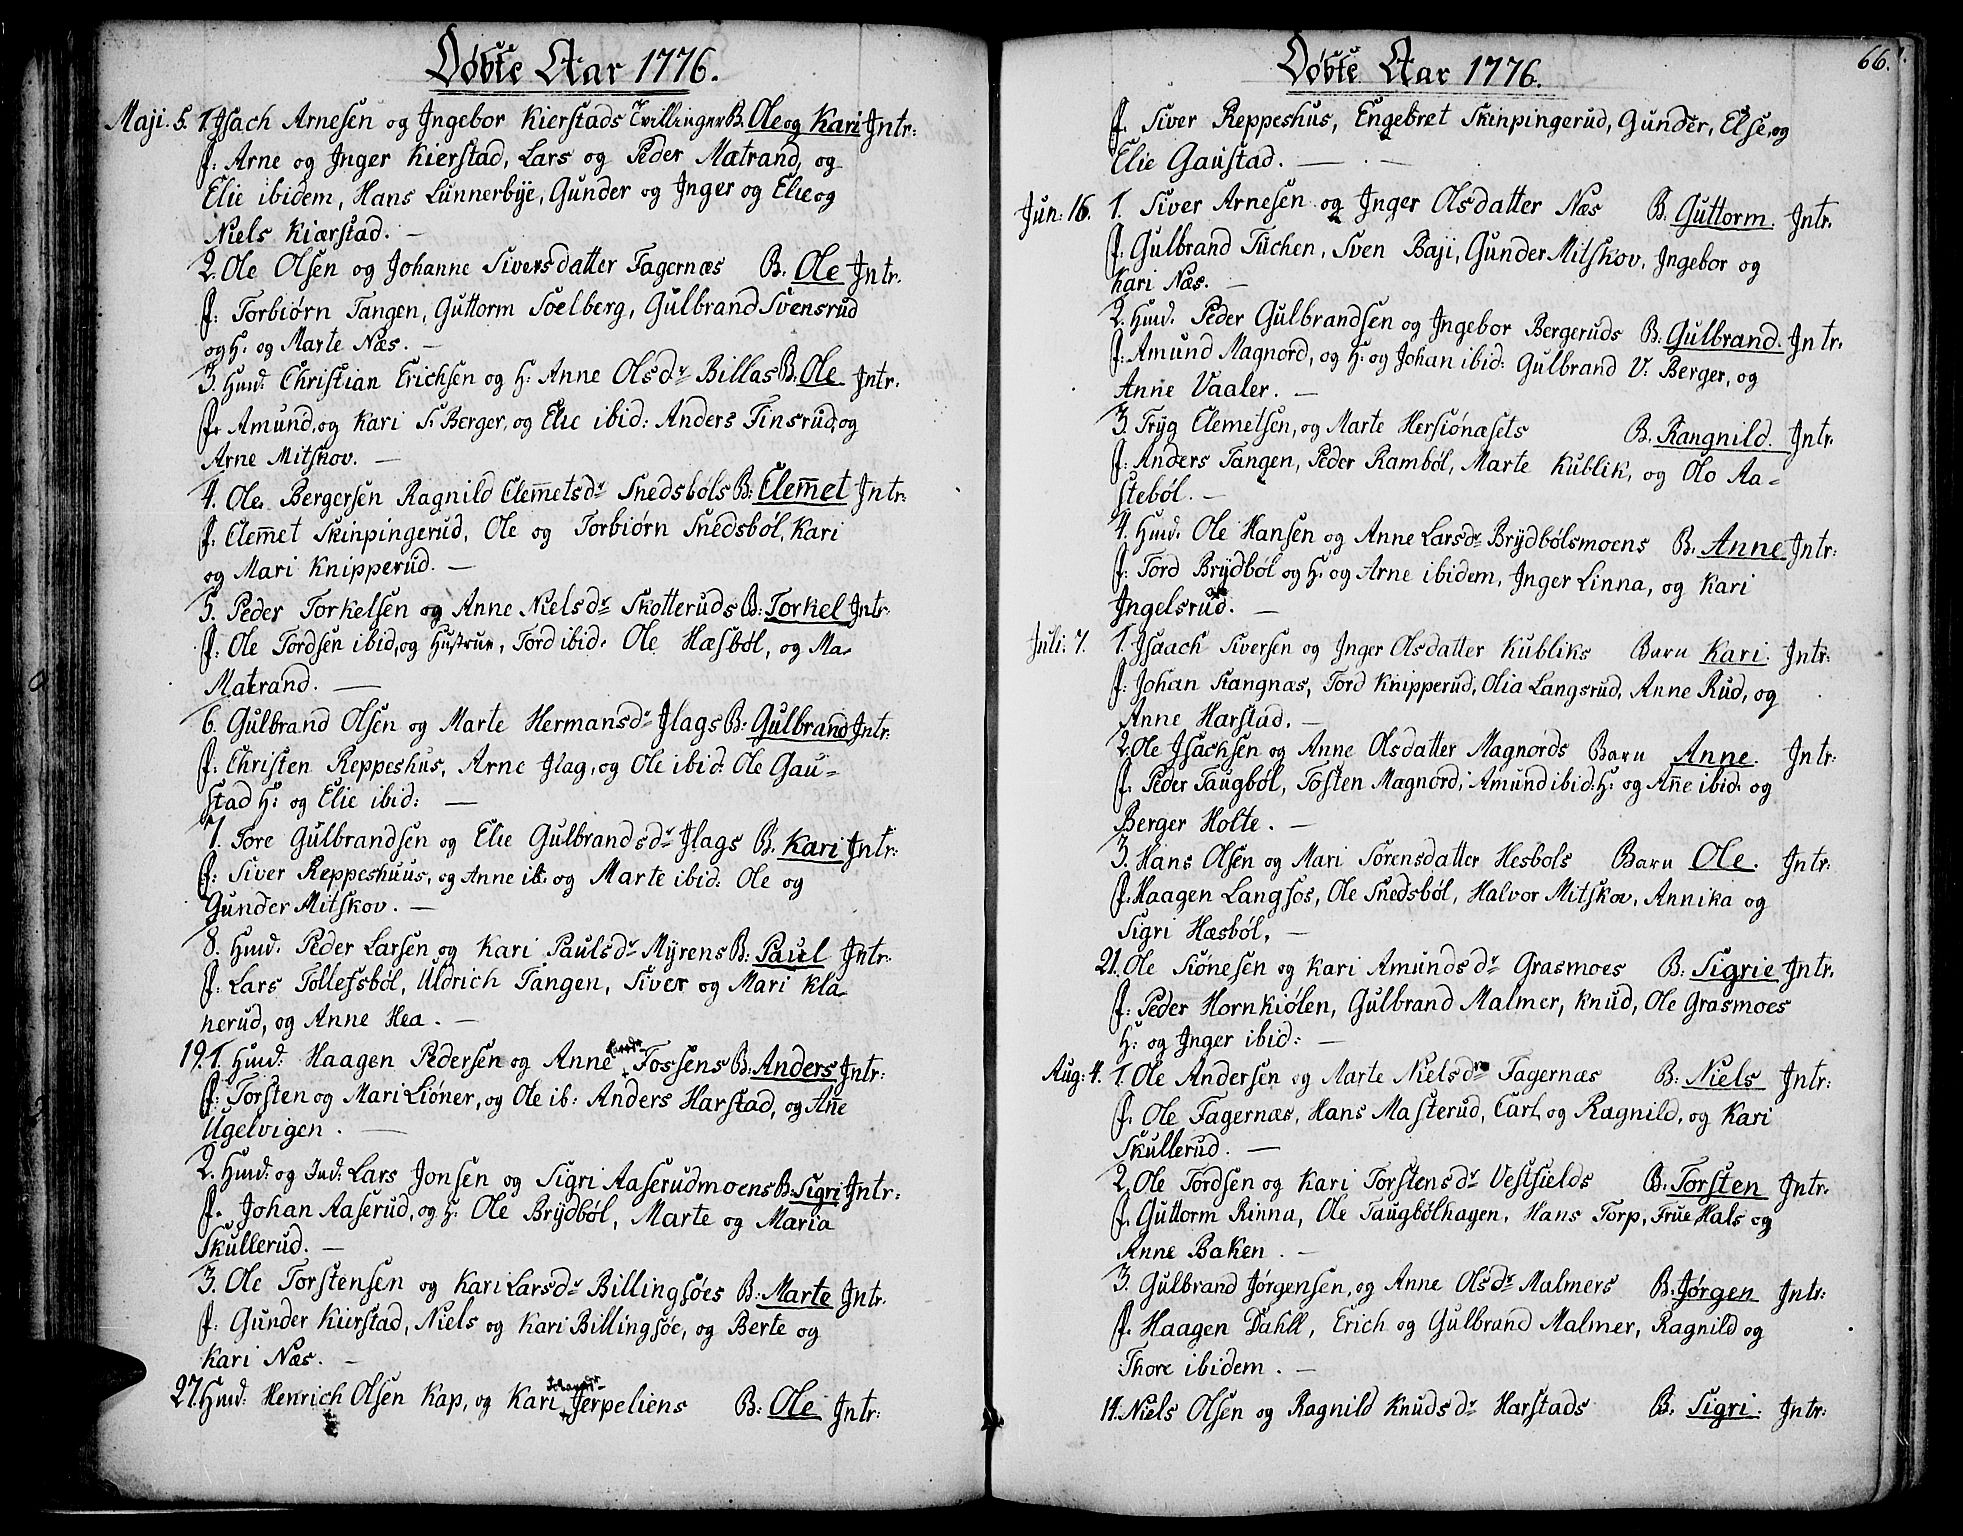 Døbte Aar 1776.
Maji. 5. 1. Isach Arnesen og Ingebor Kierstads Tvillinger B. Ole og Kari Intr:
f: Arne og Inger Kierstad, Lars og Peder Mætrand, og
Elie ibidem, Hans Lunnerbye, Gunder og Inger og Elie og
Niels Kiærstad. —
2. Ole Olsen og Johanne Siversdatter Fagernæs B: Ole Intr.
f: Torbiørn Tangen, Guttorm Soelberg, Gulbrand Svensrud
og H. og Marte Næs. —
3. Hmd: Christian Erichsen og H: Anne Olsdr Billas B. Ole Intr.
f. Amund, og Kari S. Berger, og Elie ibid: Anders Finsrud, og
Arne Mitskov. —
4. Ole Bergersen Ragnild Clemetsdr Snedsbøls B: Clemet Intr:
f. Clemet Skinpingerud, Ole og Torbiørn Snedsbøl, Kari
og Mari Knipperud. —
5. Peder Torkelsen og Anne Nielsdr Skotteruds B: Torkel Intr.
f: Ole Tordsen ibid, og Hustrue, Tord ibid. Ole Hæsbøl, og Ma-
Matrand. —
6. Gulbrand Olsen og Marte Hermansdr Ilags B: Gulbrand Intr:
f. Christen Reppeshus, Arne Ilag, og Ole ibid. Ole Gau-
stad H: og Elie ibid: —
7. Tore Gulbrandsen og Elie Gulbrandsdr Ilags B. Kari Intr:
f: Siver Reppeshuus, og Anne ib. og Marte ibid: Ole og
Gunder Mitskov. —
8. Hmd. Peder Larsen og Kari Paulsdr Myrens B: Paul Intr.
f: Lars Tollefsbøl, Uldrich Tangen, Siver og Mari Kla-
nerud, og Anne Hea. —
19. 1. Hmd: Haagen Pedersen og Anne Fossens B: Anders Intr:
f: Torsten og Mari Liøner, og Ole ib: Anders Harstad, og Añe
Ugelvigen. —
2. Hmd: og Ind: Lars Jonsen og Sigri Aaserudmoens B: Sigri Intr:
f. Johan Aaserud, og H: Ole Brydbøl, Marte og Maria
Skullerud. —
3. Ole Torstensen og Kari Larsdr Billingsøes B: Marte Intr.
f: Gunder Kierstad, Niels og Kari Billingsøe, og Berte og
Kari Næs. —
27. Hmd: Henrich Olsen Kap, og Kari Jerpeliens B: Ole Intr:
Døbte Aar 1776.
66.
f. Siver Reppeshus, Engebret Skinpingerud, Gunder, Else, og
Elie Gaustad. —
Jun: 16. 1. Siver Arnesen og Inger Olsdatter Næs B. Guttorm. Intr.
f: Gulbrand Tuchen, Sven Baji, Gunder Mitskov, Ingebor og
Kari Næs. —
2. Hmd. Peder Gulbrandsen og Ingebor Bergeruds B: Gulbrand. Intr.
f: Amund Magnord, og H: og Johan ibid: Gulbrand V: Berger, og
Anne Vaaler. —
3. Tryg Clemetsen, og Marte Hersiønæsets B. Rangnild. Intr.
f: Anders Tangen, Peder Rambøl, Marte Kublik, og Olo Aa-
stebøl. —
4. Hmd. Ole Hansen og Anne Larsdr Brydbølsmoens B. Anne Intr:
f: Tord Brydbøl og H. og Arne ibidem, Inger Linna, og Kari
Ingelsrud. —
Juli: 7. 1. Isaach Siversen og Inger Olsdatter Kubliks Barn Kari. Intr:
f: Johan Stangnæs, Tord Knipperud, Olia Langsrud, Anne Rud, og
Anne Harstad. —
2. Ole Isachsen og Anne Olsdatter Magnords Barn Anne. Intr:
f. Peder Taugbøl, Tosten Magnord, Amund ibid: H: og Añe ibid: og
Berger Holte. —
3. Hans Olsen og Mari Sørensdatter Hesbøls Barn Ole. Intr:
f. Haagen Langsos, Ole Snedsbøl, Halvor Mitskov, Annika og
Sigri Hæsbøl, —
21. Ole Siønesen og Kari Amundsdr Grasmoes B: Sigrie Intr.
f: Peder Hornkiølen, Gulbrand Malmer, Knud, Ole Grasmoes
H: og Inger ibid: —
Aug: 4. 1. Ole Andersen og Marte Nielsdr Fagernæs B: Niels Intr:
f. Ole Fagernæs, Hans Masterud, Carl, og Ragnild, og Kari
Skullerud. —
2. Ole Tordsen og Kari Torstensdr Vestfields B: Torsten Intr.
f. Guttorm Rinna, Ole Taugbølhagen, Hans Torp, Frue Hals og
Anne Baken. —
3. Gulbrand Jørgensen, og Anne Olsdr Malmers B. Jørgen Intr:
f. Haagen Dahll, Erich og Gulbrand Malmer, Ragnild og
Thore ibidem. —
14. Niels Olsen og Ragnild Knudsdr Harstads B. Sigri. Intr: